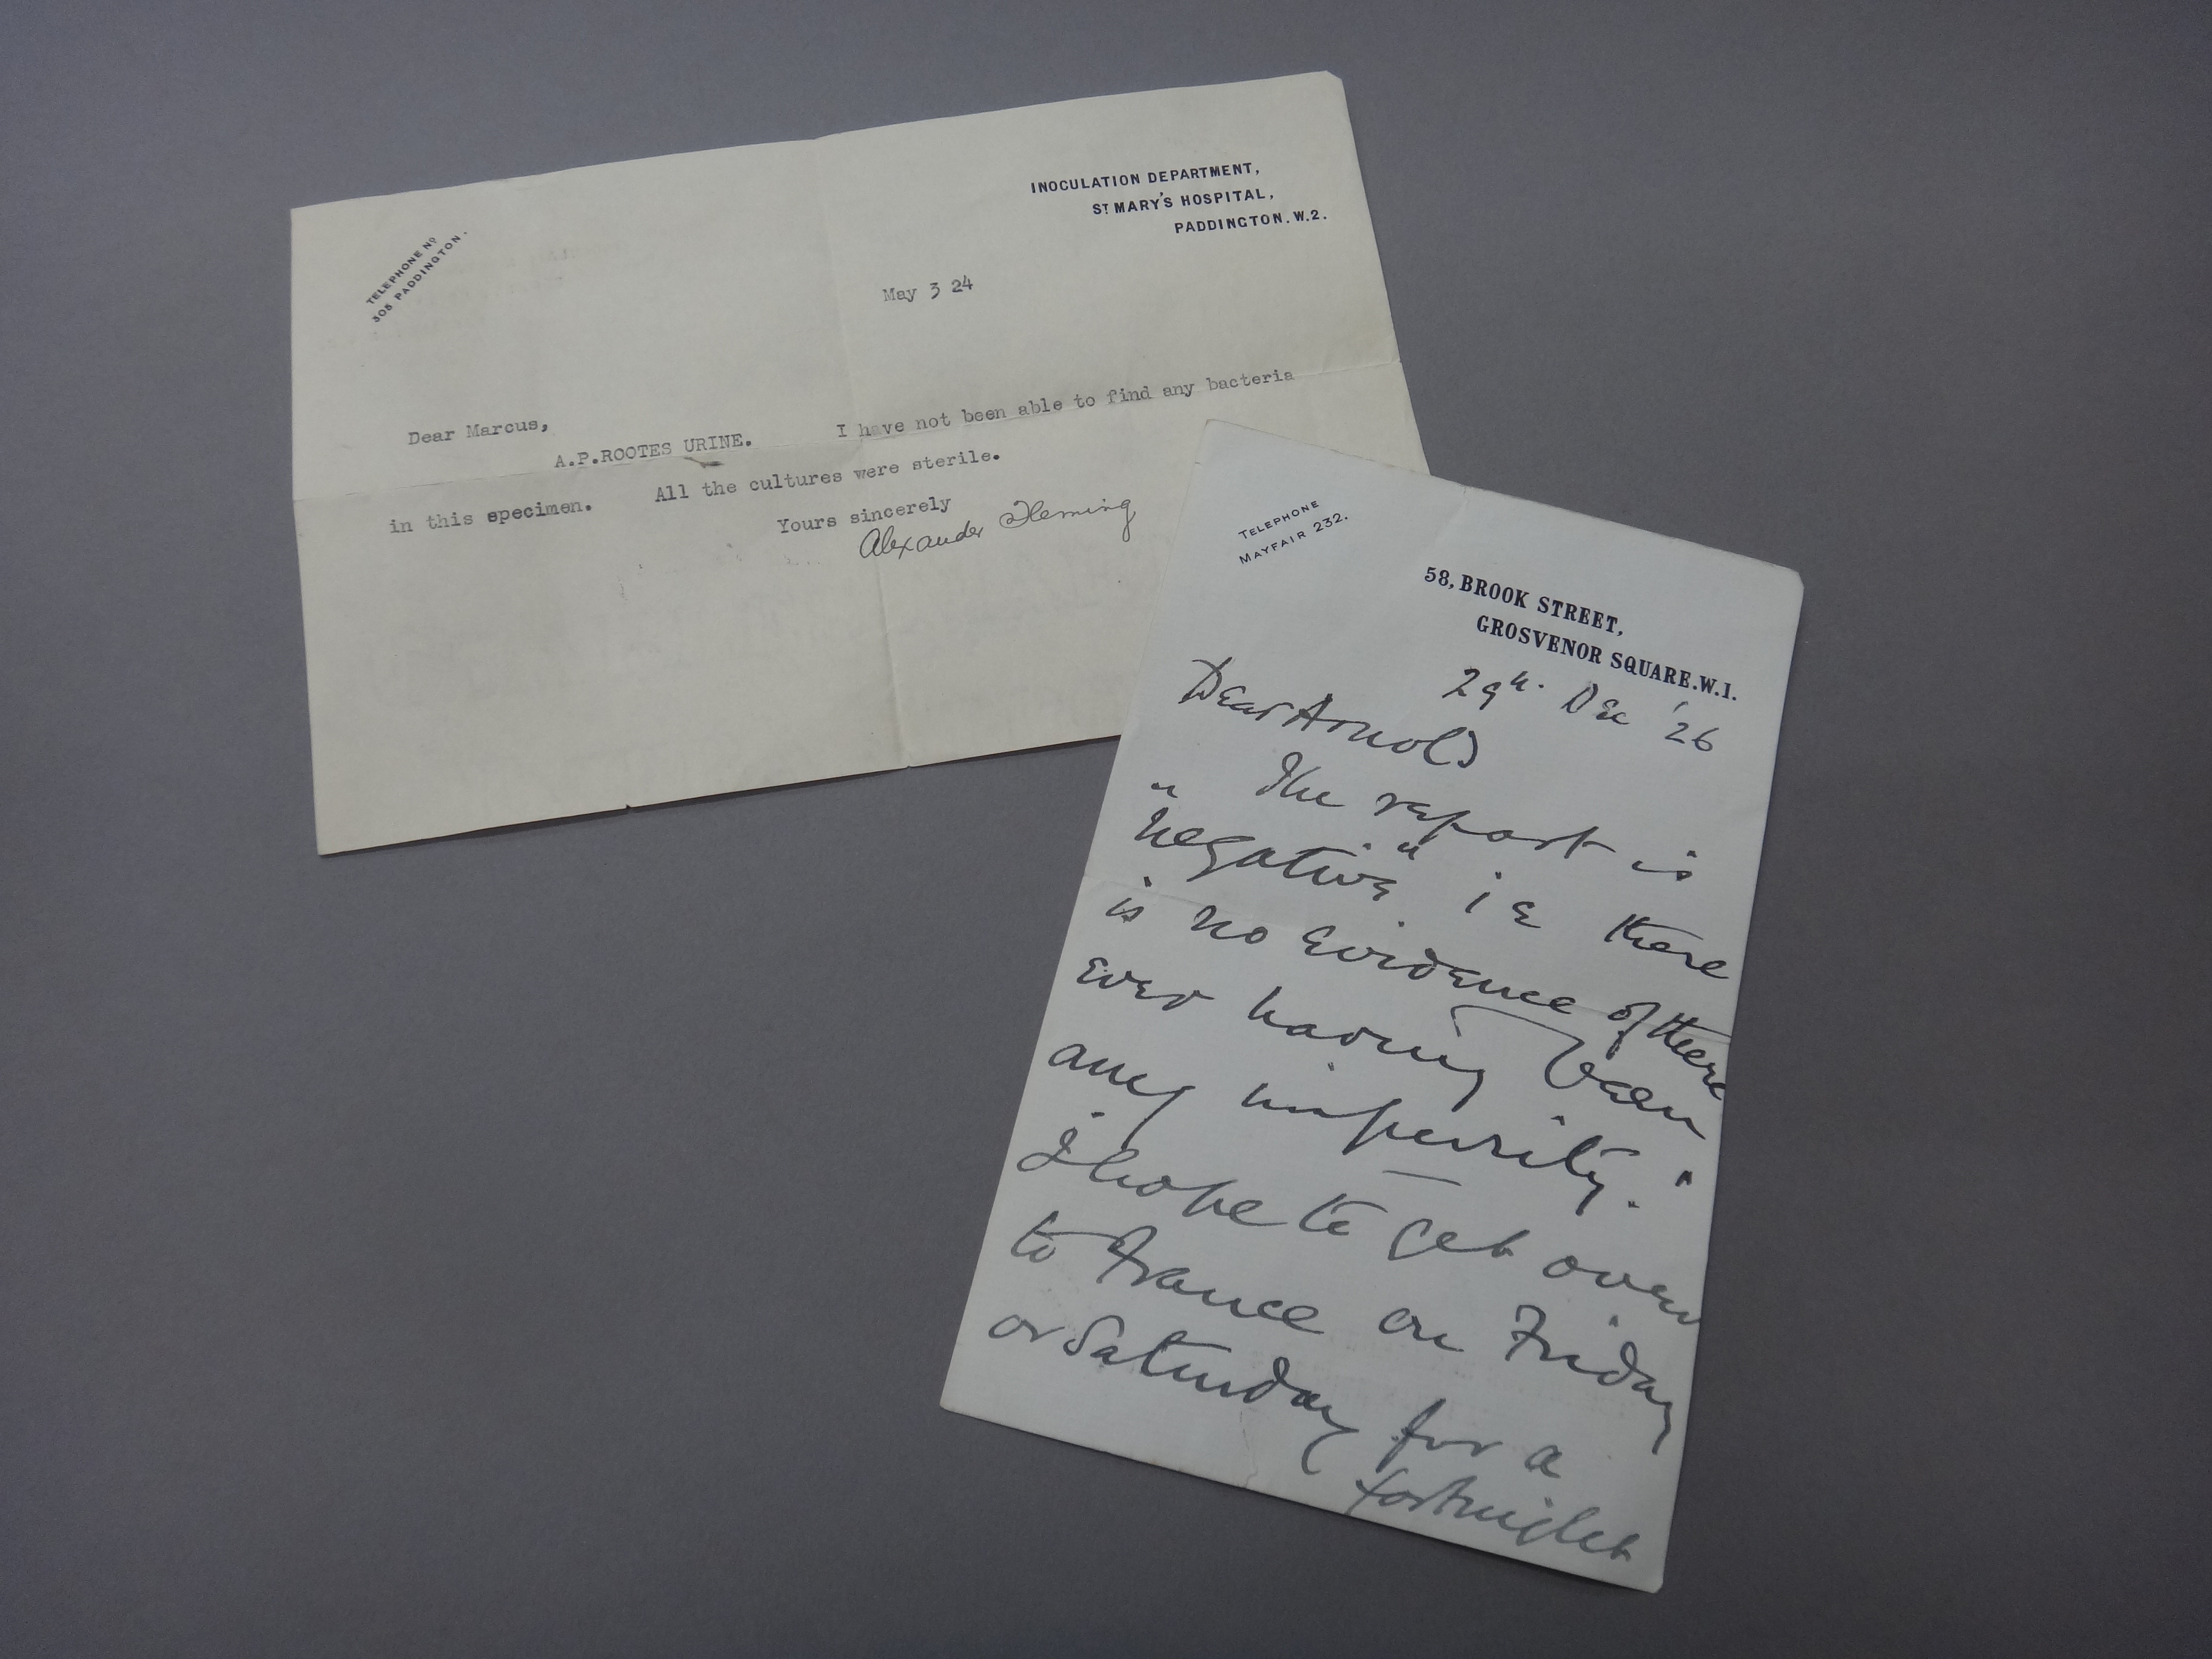 TELEPHONE Nº
305 PADDINGTON.
INOCULATION DEPARTMENT,
ST MARY'S HOSPITAL,
PADDINGTON. W.2.
May 3 24
Dear Marcus,
A.P.ROOTES URINE. I have not been able to find any bacteria
in this specimen. All the cultures were sterile.
Yours sincerely
Alexander Fleming
TELEPHONE
MAYFAIR 232.
58, BROOK STREET,
GROSVENOR SQUARE. W.1.
29th. Dec '26
Dear Arnold
The report is
"negative" ie there
is no evidence of there
ever having been
any impurity."
I hope to get over
to France on Friday
or Saturday for a
fortnight